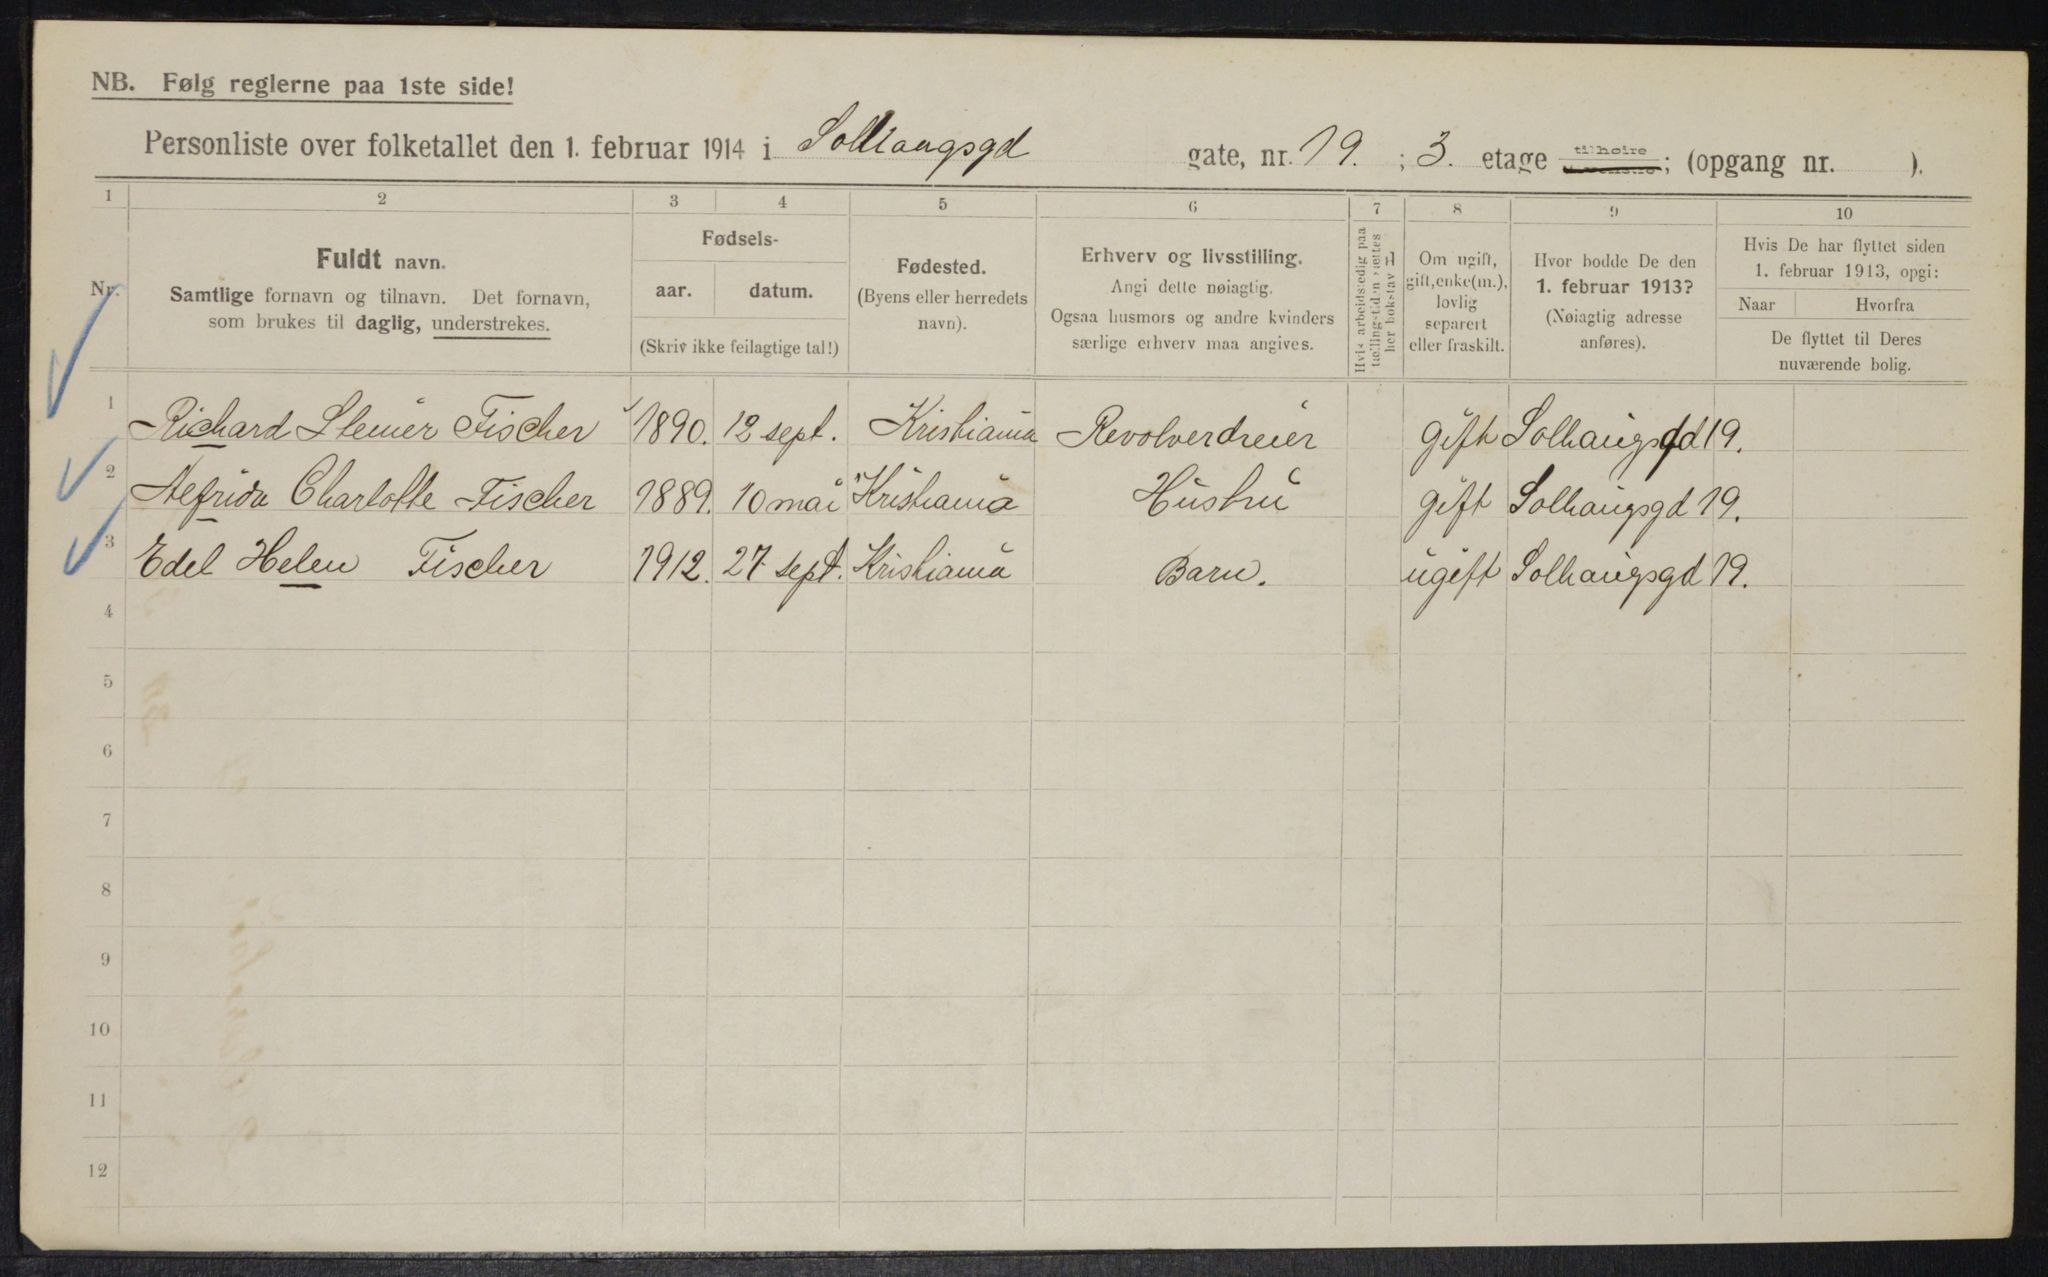 NB. Følg reglerne paa 1ste side!
Personliste over folketallet den 1. februar 1914 i Solhaugsgd gate, nr. 19. ; 3. etage tilhøire ; (opgang nr. ).
1 2 3 4 5 6 7 8 9 10
Nr.
Fuldt navn.
Samtlige fornavn og tilnavn. Det fornavn,
som brukes til daglig, understrekes.
Fødsels-
aar. datum.
(Skriv ikke feilagtige tal!)
Fødested.
(Byens eller herredets
navn).
Erhverv og livsstilling.
Angi dette nøiagtig.
Ogsaa husmors og andre kvinders
særlige erhverv maa angives.
Hvis arbeidsledig paa
tællingstiden sættes
her bokstav L
Om ugift,
gift, enke(m.),
lovlig
separert
eller fraskilt.
Hvor bodde De den
1. februar 1913?
(Nøiagtig adresse
anføres).
Hvis De har flyttet siden
1. februar 1913, opgi:
Naar Hvorfra
De flyttet til Deres
nuværende bolig.
1 Richard Steiner Fischer 1890. 12 sept. Kristiania Revolverdreier gift Solhaugsgd 19.
2 Alfrida Charlotte Fischer 1889. 10 mai Kristiania Hustru gift Solhaugsgd 19.
3 Edel Helen Fischer 1912. 27. sept. Kristiania Barn. ugift Solhaugsgd 19.
4
5
6
7
8
9
10
11
12